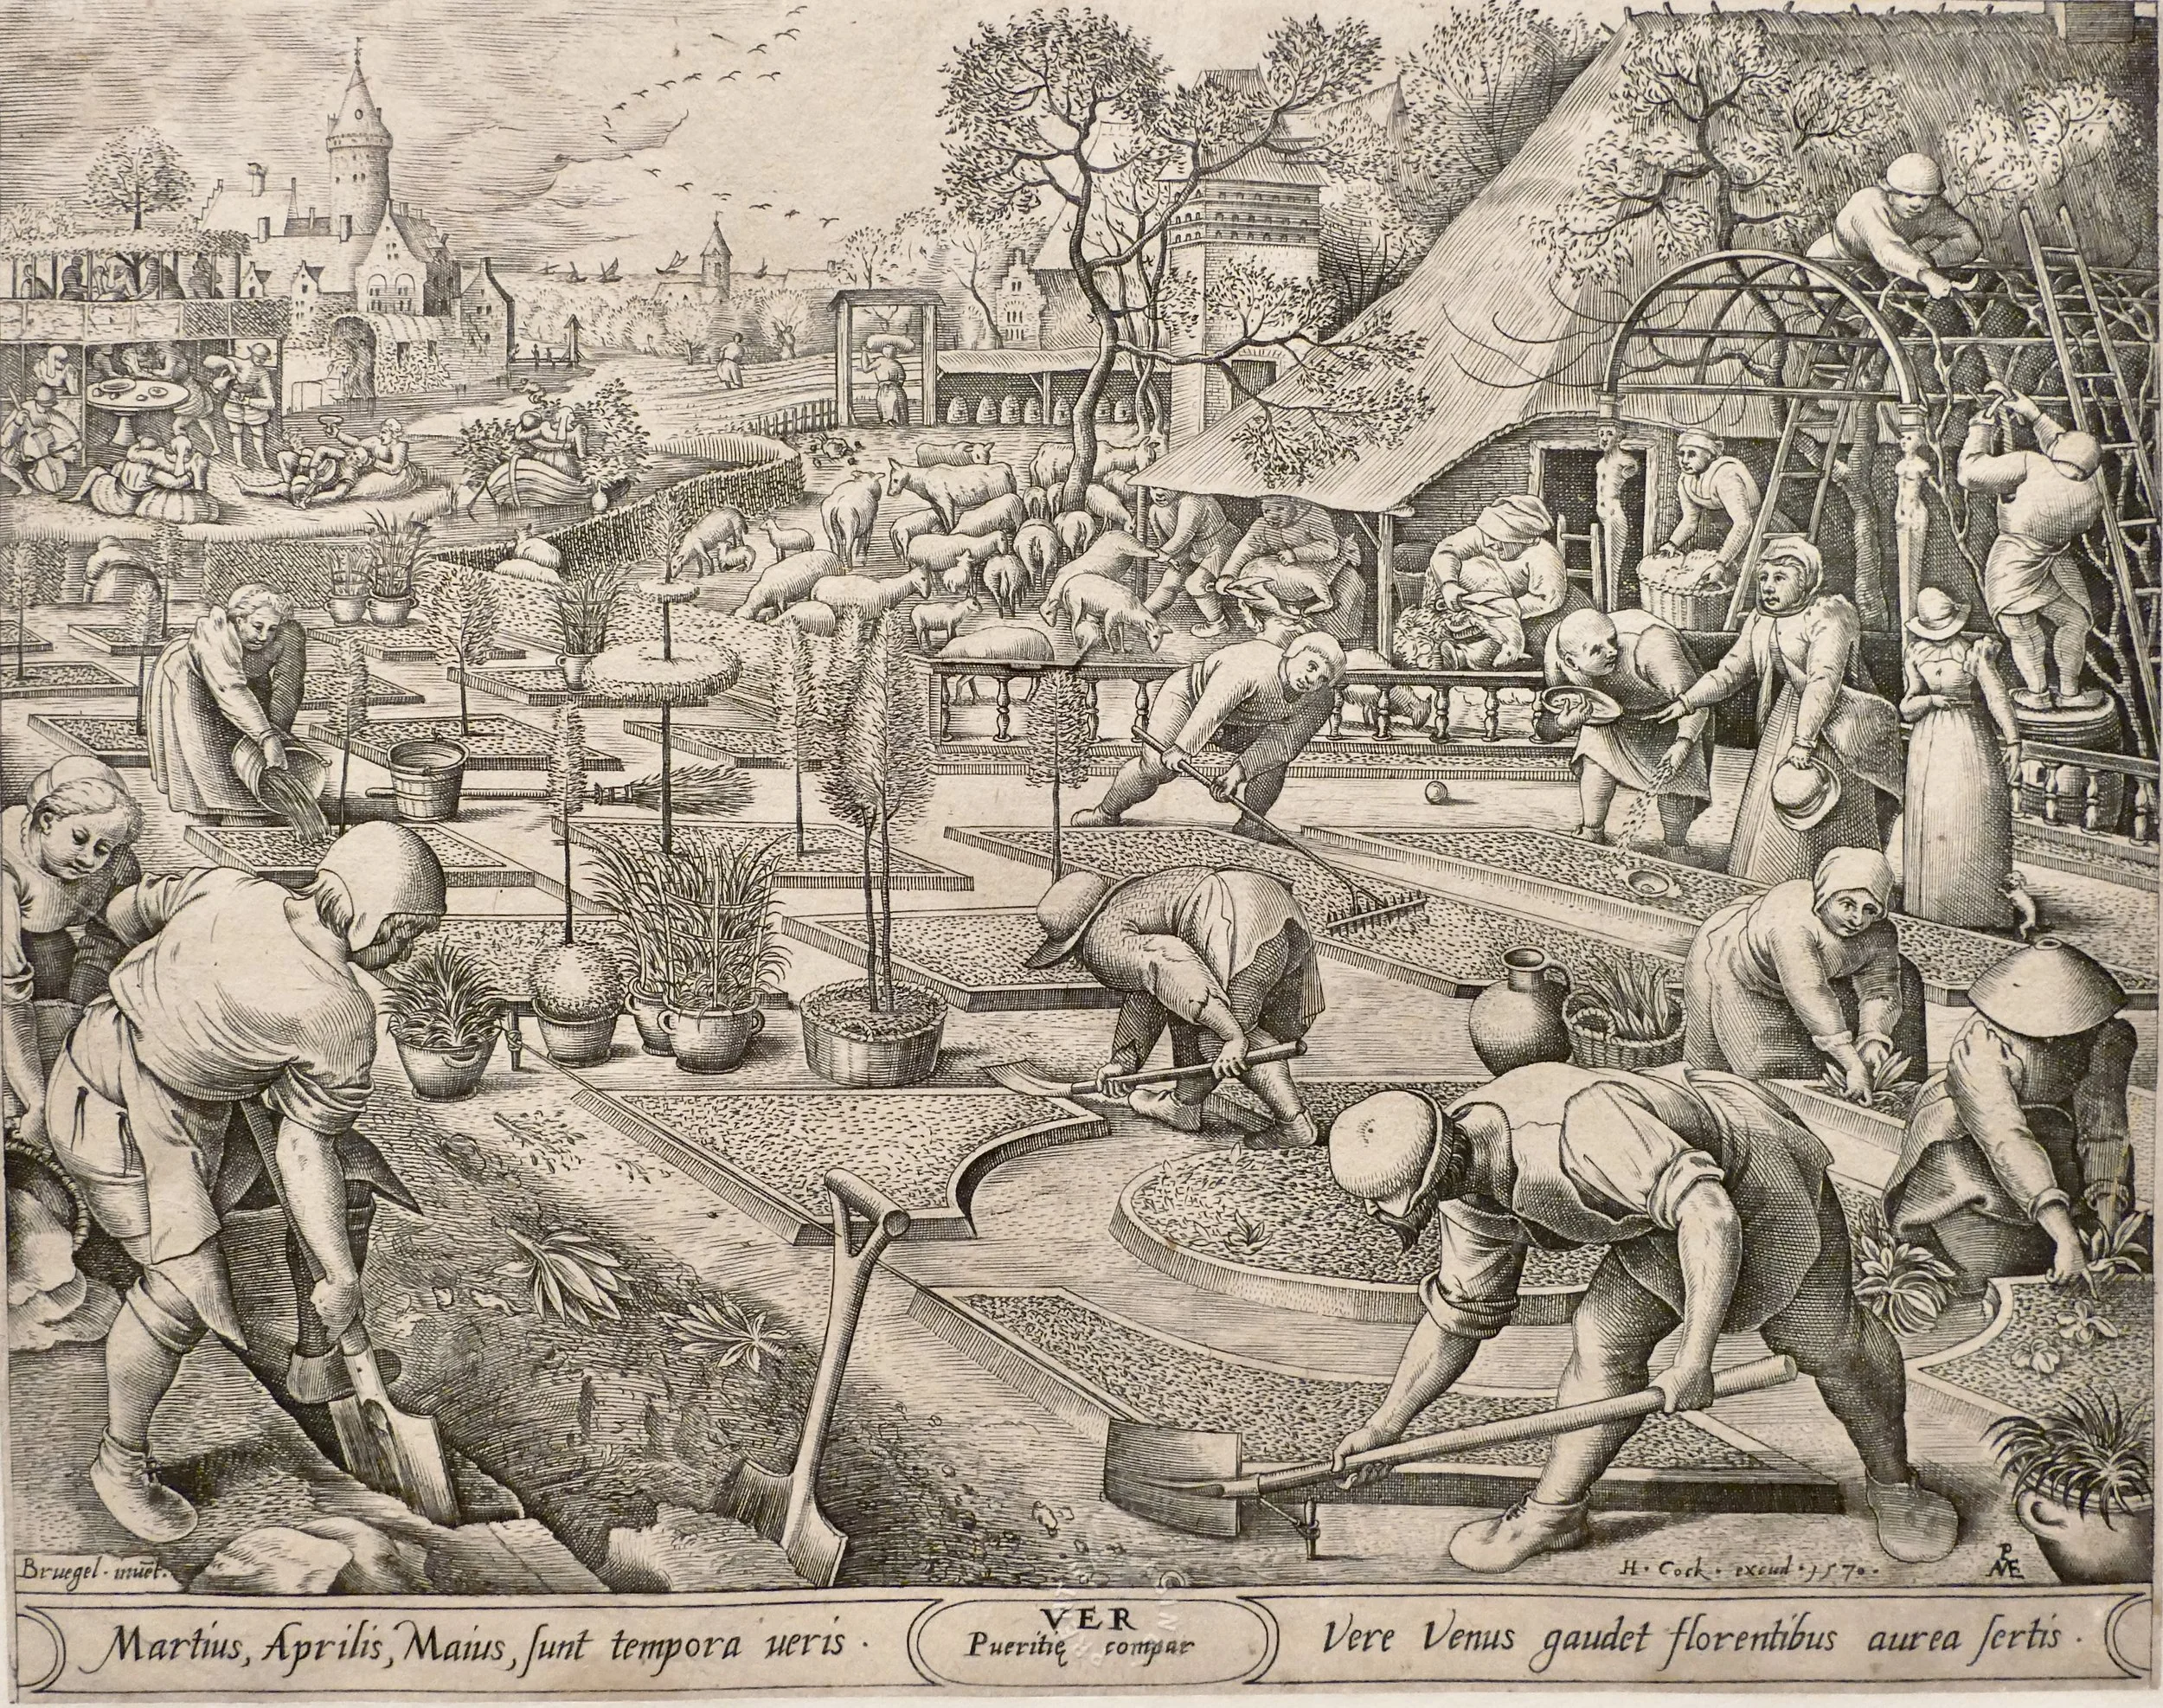 Bruegel · inuēt.
H · Cock · excud · 1570 ·
PAME
Martius, Aprilis, Maius, sunt tempora ueris ·
VER
Pueritię compar
Vere Venus gaudet florentibus aurea sertis ·